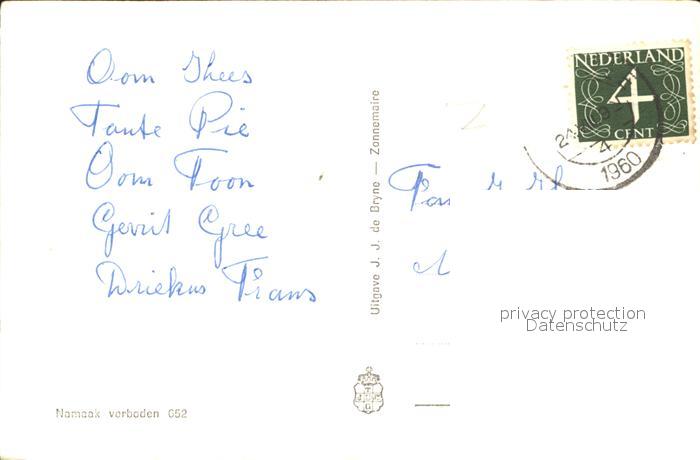 Oom Thees
Tante Pie
Oom Toon
Gerrit Gree
Driekus Frans
Namaak verboden 652
Uitgave J. J. de Bryne — Zonnemaire
NEDERLAND
4
CENT
4
1960
privacy protection
Datenschutz